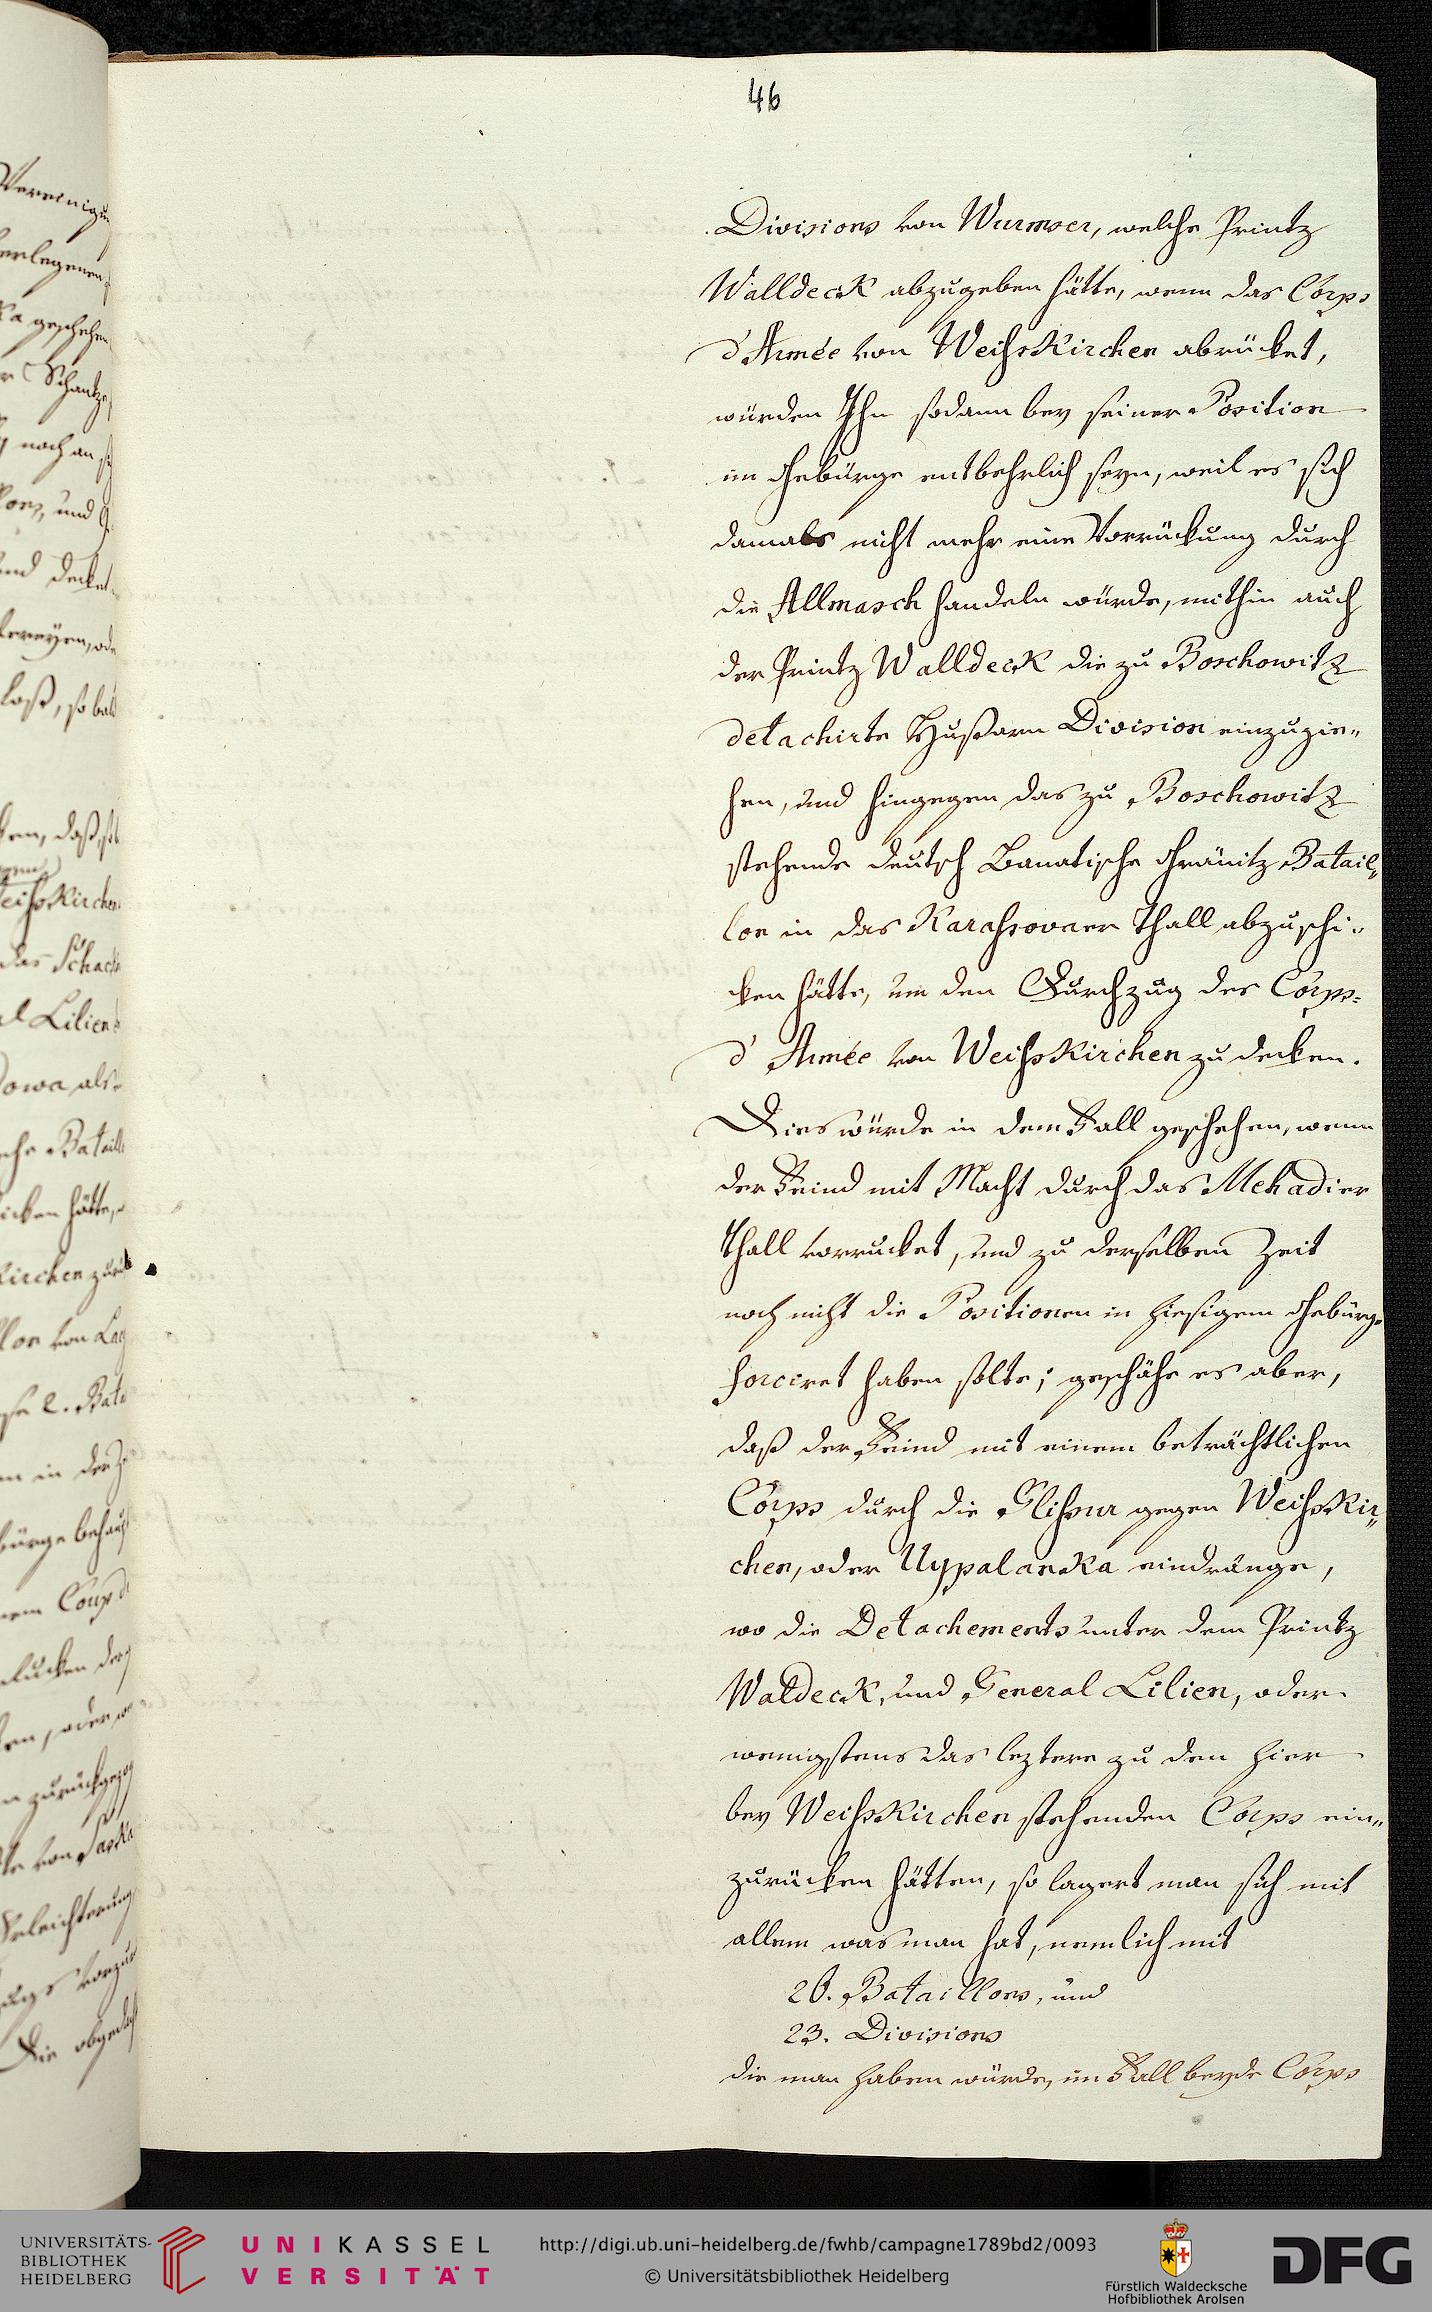 46
Divisions von Wurmser, welche Printz
Walldeck abzugeben hätte, wenn das Corps
d'Armée von Weisskirchen abrücket,
würden Ihm sodann bey seiner Position
im Gebürge entbehrlich seyn, weil es sich
damals nicht mehr eine Vorrückung durch
die Allmasch handeln würde, mithin auch
der Printz Walldeck die zu Boschowitz
detachirte Hußarn Division einzuzie„
hen, und hingegen das zu Boschowitz
stehende deutsch Banatische Gränitz Batail„
lon in das Karassovaer Thall abzuschi„
cken hätte, um den Durchzug des Corps=
d'Armée von Weisskirchen zu decken.
Dies würde in dem Fall geschehen, wenn
der Feind mit Macht durch das Mehadier
Thall vorrucket, und zu derselben Zeit
noch nicht die Positionen in hiesigem Gebürge
forciret haben solte; geschähe es aber,
daß der Feind mit einem beträchtlichen
Corps durch die Clissur gegen Weisskir„
chen, oder Uypalanka eindränge,
wo die Detachements unter dem Printz
Waldeck, und General Lilien, oder
wenigstens das leztere zu den hier
bey Weisskirchen stehenden Corps ein„
zurücken hätten, so lagert man sich mit
allem was man hat, nemlich mit
20. Bataillons, und
23. Divisions
die man haben würde, im Fall beyde Corps
Vereinigu
erlegenen
ka geschehen
r Schantze,
noch an
und
und decket
loß, so bal
daß
eisskirchen
das
Lilien
owa als
Bataill
icken hätte,
kirchen zurü
lon von
2. Bat
in der
bürge behau
Coup d'
lucken der
oder
zurückgezo
von Saska
Erleichterung
vorzu
Die obgedach
UNIVERSITÄTS-
BIBLIOTHEK
HEIDELBERG
UNIKASSEL
VERSITÄT
http://digi.ub.uni-heidelberg.de/fwhb/campagne1789bd2/0093
© Universitätsbibliothek Heidelberg
Fürstlich Waldecksche
Hofbibliothek Arolsen
DFG